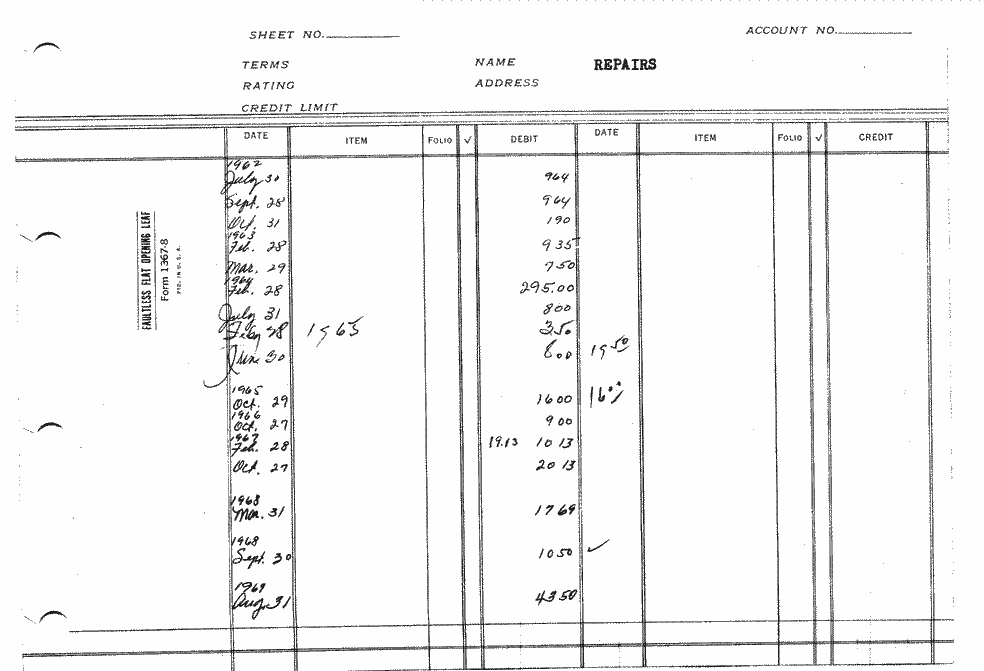 SHEET NO.
ACCOUNT NO.
TERMS
NAME
REPAIRS
RATING
ADDRESS
CREDIT LIMIT
DATE ITEM FOLIO √ DEBIT DATE ITEM FOLIO √ CREDIT
FAULTLESS FLAT OPENING LEAF
Form 1367-8
PTD. IN U. S. A.
1962
July 30 964
Sept. 28 964
Oct. 31 190
1963
Feb. 28 935
Mar. 29 750
1964
Feb. 28 295.00
July 31 800
Feb 28 1965 350
June 30 800 19 50
1965
Oct. 29 1600 16
1966
Oct. 27 900
1967
Feb. 28 19.13 10 13
Oct. 27 20 13
1968
Mar. 31 1769
1968
Sept. 30 1050 ✓
1969
Aug. 31 4350